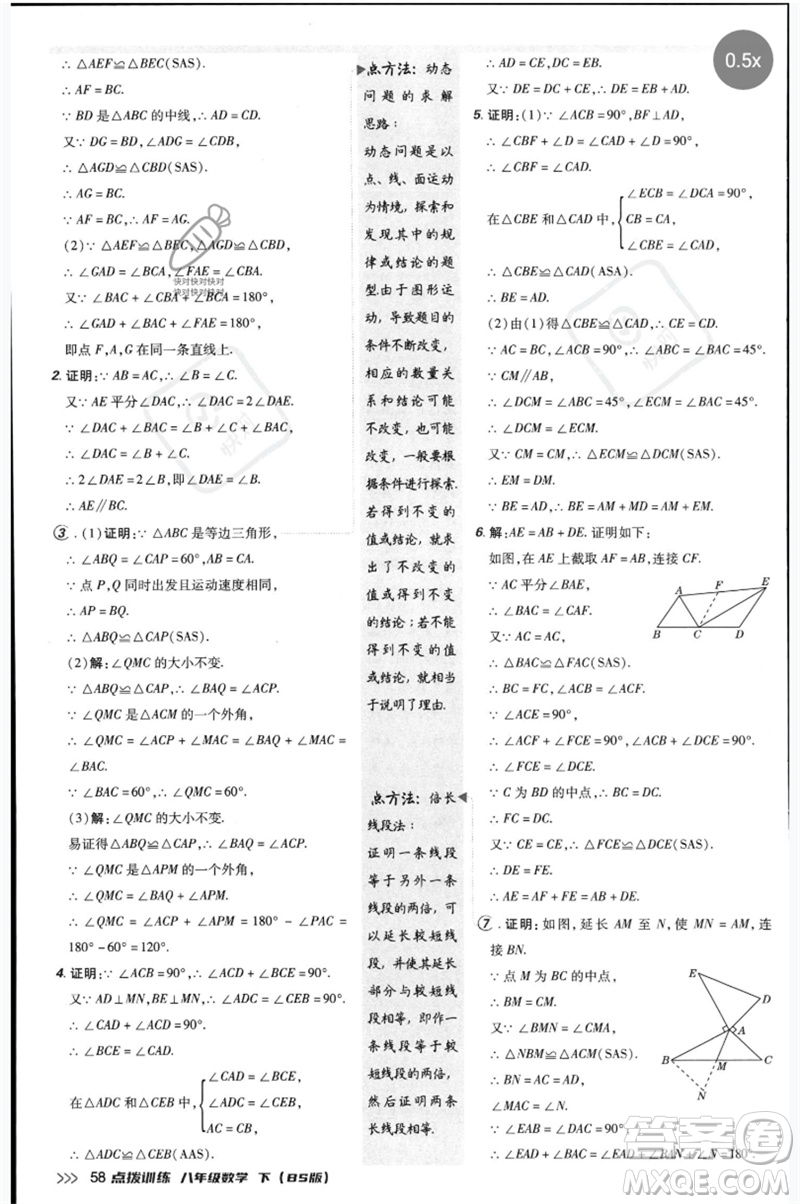 ∴ △AEF≌△BEC(SAS).
∴ AF = BC.
∵ BD 是△ABC 的中线,∴ AD = CD.
又∵ DG = DB, ∠ADG = ∠CDB,
∴ △AGD≌△CBD(SAS).
∴ AG = BC.
∵ AF = BC,∴ AF = AG.
(2)∵ △AEF≌△BEC,△AGD≌△CBD,
∴ ∠GAD = ∠BCA,∠FAE = ∠CBA.
又∵ ∠BAC + ∠CBA + ∠BCA = 180°,
∴ ∠BAC + ∠GAD + ∠FAE = 180°,
即点 F,A,G 在同一条直线上.
2. 证明:∵ AB = AC,∴ ∠B = ∠C.
又∵ AE 平分∠DAC,∴ ∠DAC = 2∠DAE.
∵ ∠DAC + ∠BAC = ∠B + ∠C + ∠BAC,
∴ ∠DAC = ∠B + ∠C.
∴ 2∠DAE = 2∠B,即∠DAE = ∠B.
∴ AE∥BC.
3. (1)证明:∵ △ABC 是等边三角形,
∴ ∠ABQ = ∠CAP = 60°,AB = CA.
∵ 点 P,Q 同时出发且运动速度相同,
∴ AP = BQ.
∴ △ABQ≌△CAP(SAS).
(2)解:∠QMC 的大小不变.
∵ △ABQ≌△CAP,∴ ∠BAQ = ∠ACP.
∵ ∠QMC 是△ACM 的一个外角,
∴ ∠QMC = ∠ACP + ∠MAC = ∠BAQ + ∠MAC =
∠BAC.
∵ ∠BAC = 60°,∴ ∠QMC = 60°.
(3)解:∠QMC 的大小不变.
易证得△ABQ≌△CAP,∴ ∠BAQ = ∠ACP.
∵ ∠QMC 是△APM 的一个外角,
∴ ∠QMC = ∠ACP + ∠APM.
∴ ∠QMC = ∠ACP + ∠APM = 180° - ∠PAC =
180° - 60° = 120°.
4. 证明:∵ ∠ACB = 90°,∴ ∠ACD + ∠BCE = 90°.
又∵ AD⊥MN,BE⊥MN,∴ ∠ADC = ∠CEB = 90°.
∴ ∠ACD + ∠CAD = 90°.
∴ ∠CAD = ∠BCE.
∠CAD = ∠BCE,
在△ADC 和△CEB 中,{∠ADC = ∠CEB,
AC = CB,
∴ △ADC≌△CEB(AAS).
点方法:动态
问题的求解
思路:
动态问题是以
点、线、面运动
为情境,探索和
发现其中的规
律或结论的题
型.由于图形运
动,导致题目的
条件不断改变,
相应的数量关
系和结论可能
不改变,也可能
改变,一般要根
据条件进行探索.
若得到不变的
值或结论,就求
出了不改变的
值或得到不变
的结论;若不能
得到不变的值
或结论,就相当
于说明了理由.
点方法:倍长
线段法:
证明一条线段
等于另外一条
线段的两倍,可
以延长较短线
段,并使其延长
部分与较短线
段相等,即作一
条线段等于较短
线段的两倍,
然后证明两条
长线段相等.
∴ AD = CE,DC = EB.
又∵ DE = DC + CE,∴ DE = EB + AD.
5. 证明:(1)∵ ∠ACB = 90°,BF⊥AD,
∴ ∠CBF + ∠D = ∠CAD + ∠D = 90°.
∴ ∠CBF = ∠CAD.
∠ECB = ∠DCA = 90°,
在△CBE 和△CAD 中,{CB = CA,
∠CBE = ∠CAD,
∴ △CBE≌△CAD(ASA).
∴ BE = AD.
(2)由(1)得△CBE≌△CAD,∴ CE = CD.
∵ AC = BC,∴ ∠ABC = ∠BAC = 45°.
∵ CM∥AB,
∴ ∠DCM = ∠ABC = 45°,∠ECM = ∠BAC = 45°.
∴ ∠DCM = ∠ECM.
∴ △ECM≌△DCM(SAS).
∴ ME = MD.
∵ BE = AD,∴ BE = AM + MD = AM + EM.
6. 解:AE = AB + DE. 证明如下:
如图,在 AE 上截取 AF = AB,连接 CF.
∵ AC 平分∠BAE,
∴ ∠BAC = ∠CAF.
∴ △BAC≌△FAC(SAS).
∴ BC = FC,∠ACB = ∠ACF.
∵ ∠ACE = 90°,
∴ ∠ACF + ∠FCE = 90°,∠ACB + ∠DCE = 90°.
∴ ∠FCE = ∠DCE.
∵ C 为 BD 的中点,∴ BC = DC.
∴ FC = DC.
又∵ CE = CE,∴ △FCE≌△DCE(SAS).
∴ DE = FE.
∴ AE = AF + FE = AB + DE.
A
F
E
B
C
D
7. 证明:如图,延长 AM 至 N,使 MN = AM,连
接 BN.
∵ 点 M 为 BC 的中点,
∴ BM = CM.
又∵ ∠BMN = ∠CMA,
∴ △NBM≌△ACM(SAS).
∴ BN = AC = AD,
∠MAC = ∠N.
∴ ∠BAC + ∠ABN = ∠BAN + ∠ABN + ∠N = 180°.
E
D
A
B
M
C
N
58 点拨训练 八年级数学 下(BS版)
0.5x
快对快对快对
快对快对快对
答案圈